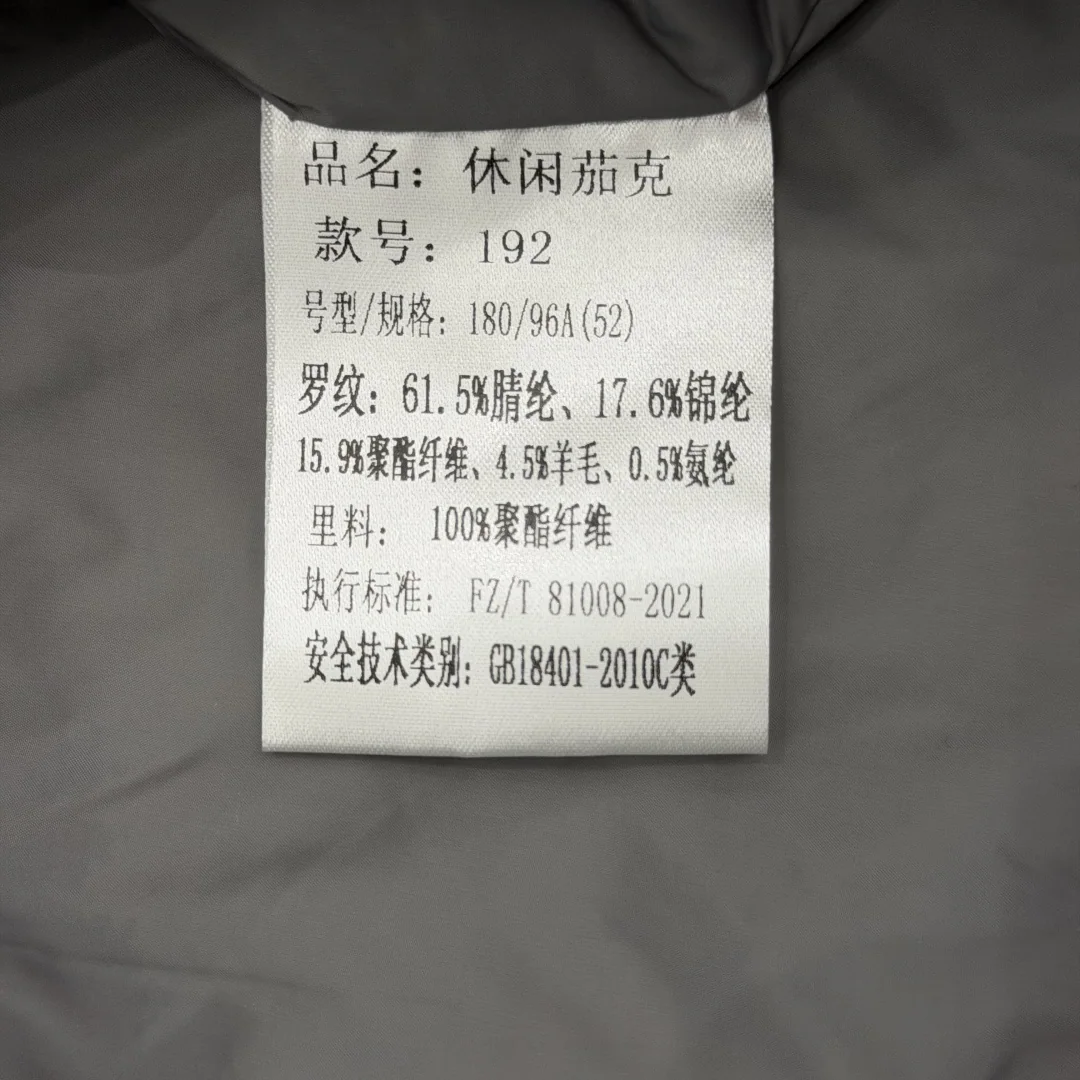 品名：休闲茄克
款号：192
号型/规格：180/96A(52)
罗纹：61.5%腈纶、17.6%锦纶
15.9%聚酯纤维、4.5%羊毛、0.5%氨纶
里料： 100%聚酯纤维
执行标准： FZ/T 81008-2021
安全技术类别：GB18401-2010C类